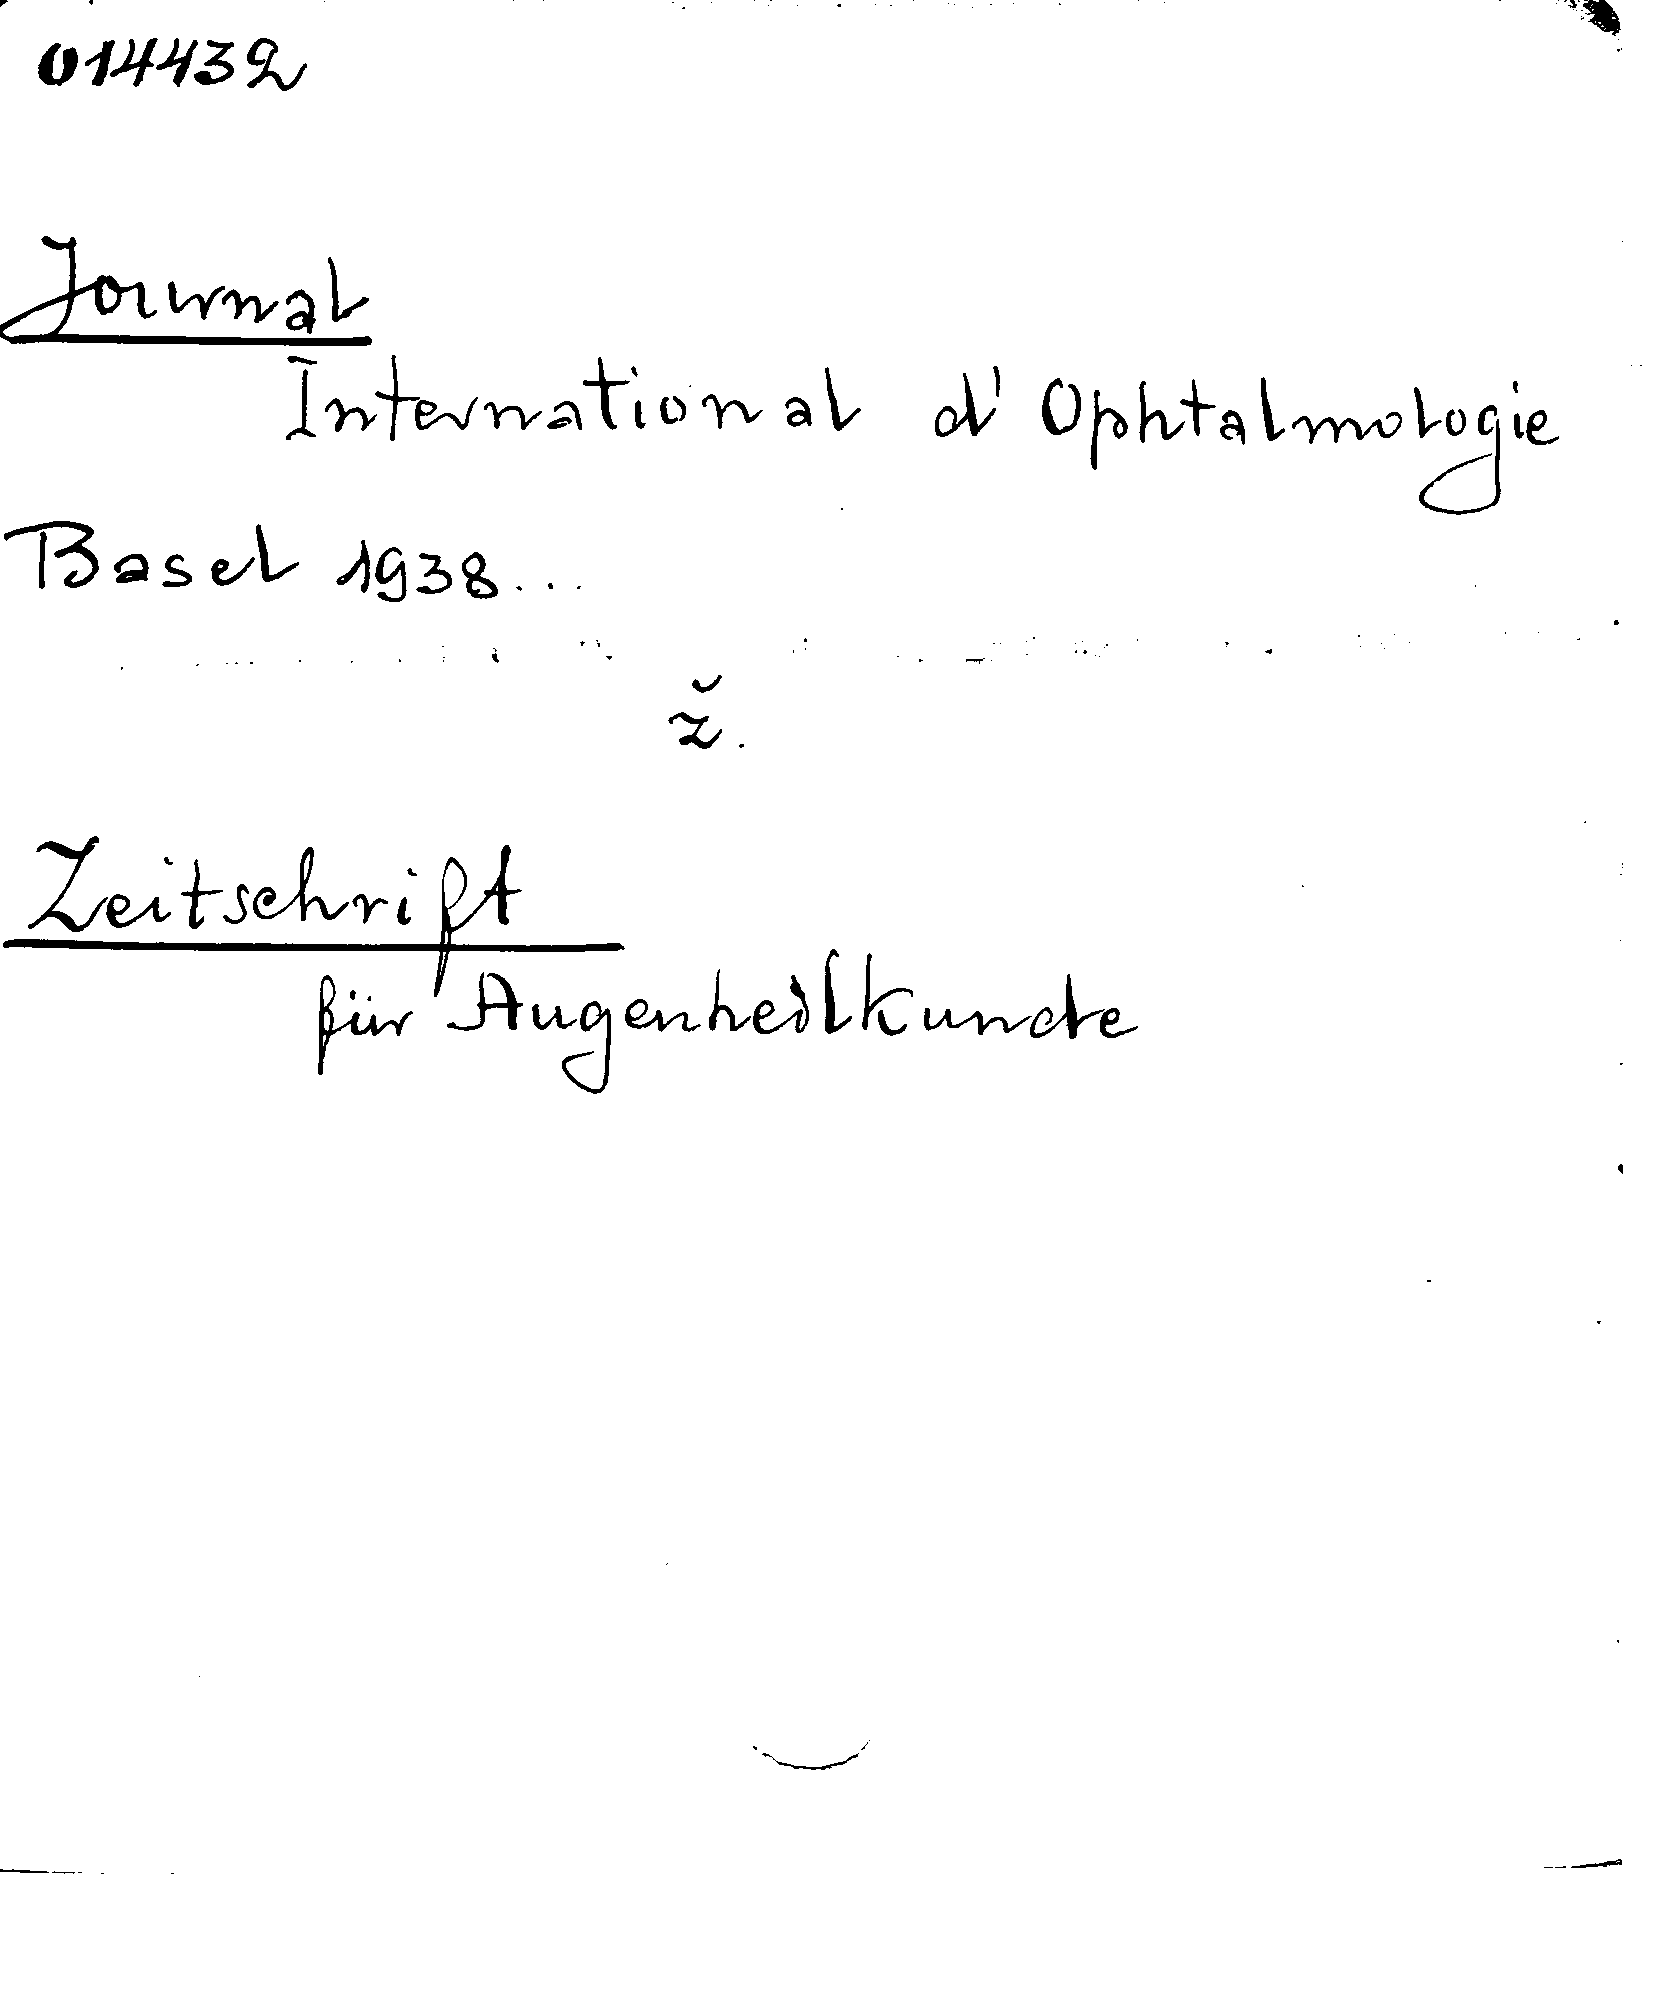 014432
Journal
International d'Ophtalmologie
Basel 1938...
ž.
Zeitschrift
für Augenheilkunde